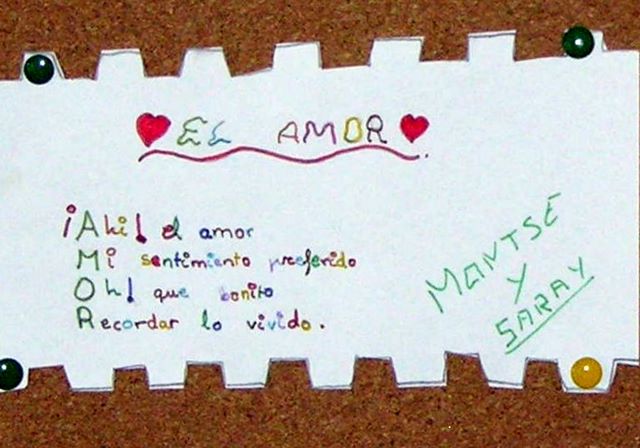 EL AMOR
¡Ahi! el amor
Mi sentimiento preferido
Oh! que bonito
Recordar lo vivido.
MONTSE
Y
SARAY